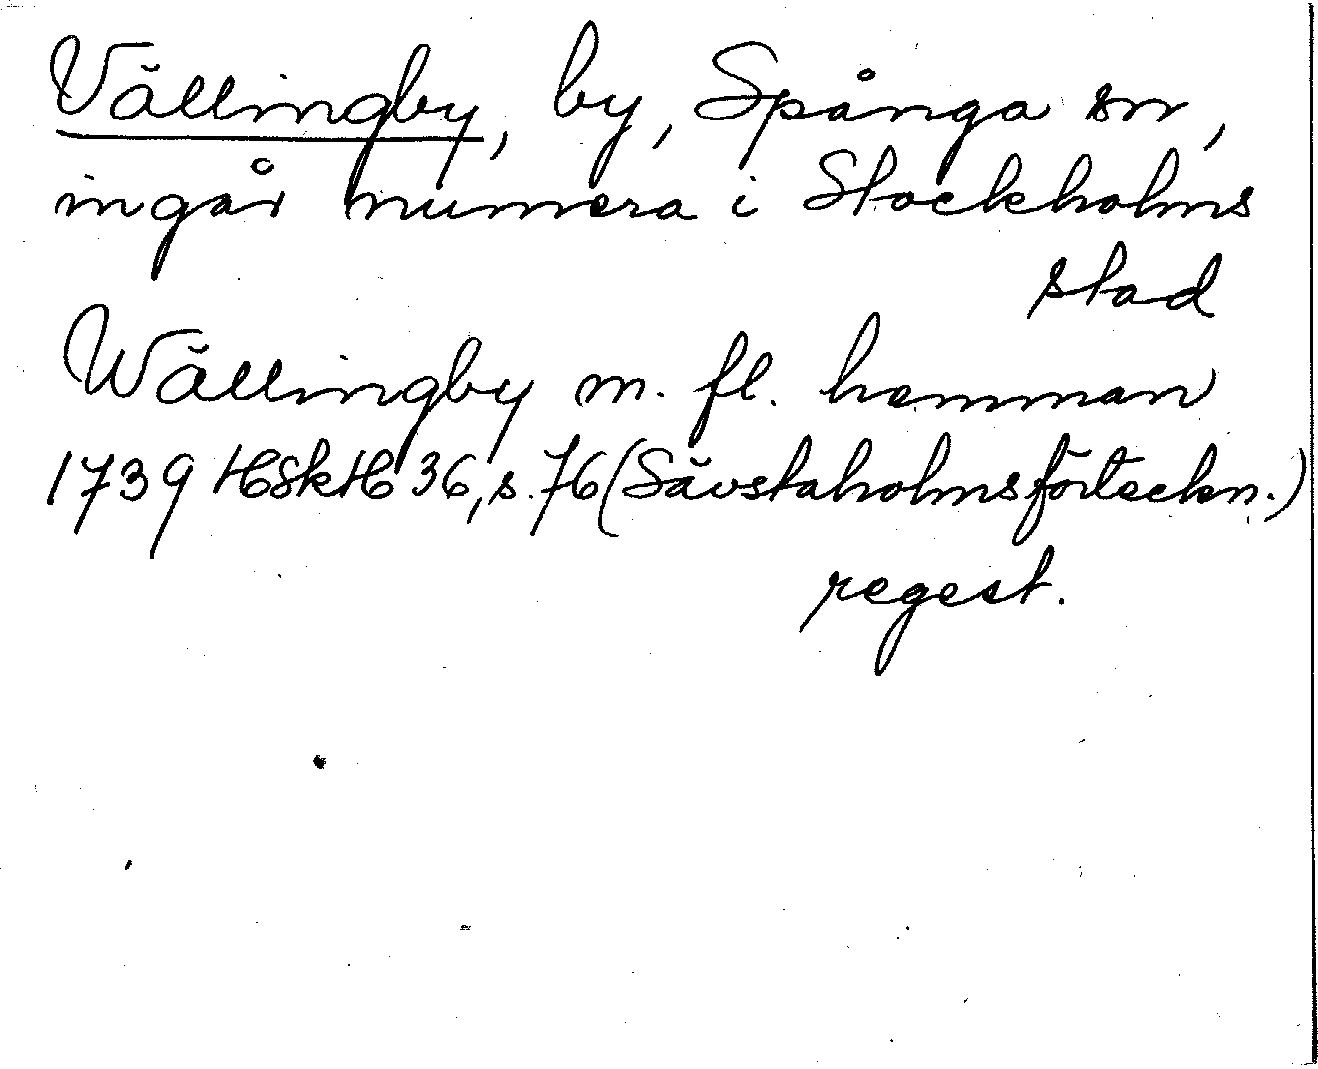 Vällingby, by, Spånga sn,
ingår numera i Stockholms
stad
Wällingby m. fl. hemman
1739 HSkH 36, s. 76 (Sävstaholmsförteckn.)
regest.